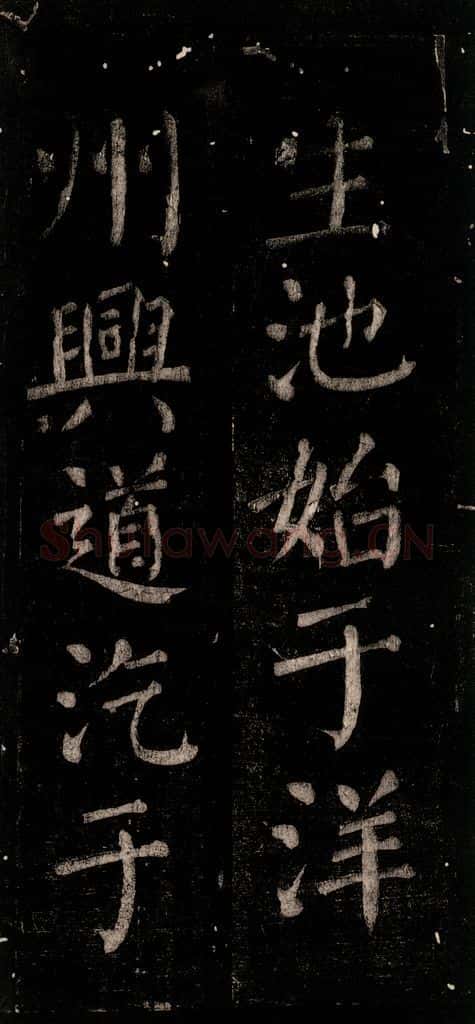 生池始于洋
州興道汔于
Shufawang.CN